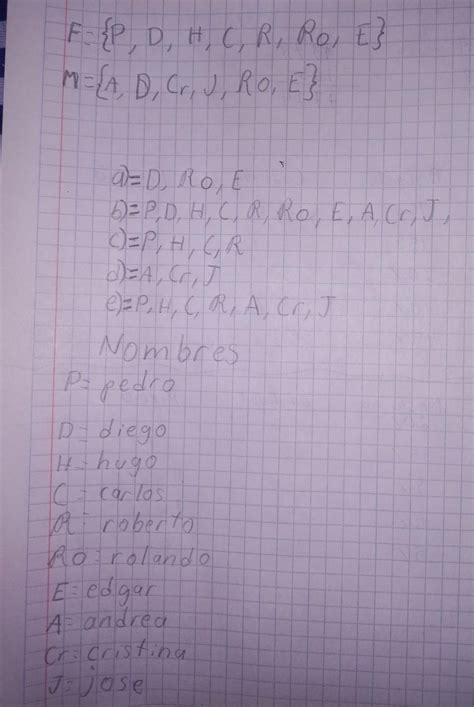 F={P, D, H, C, R, Ro, E}
M={A, D, Cr, J, Ro, E}
a)=D, Ro, E
b)=P, D, H, C, R, Ro, E, A, Cr, J,
c)=P, H, C, R
d)=A, Cr, J
e)=P, H, C, R, A, Cr, J
Nombres
P= pedro
D= diego
H= hugo
C= carlos
R= roberto
Ro= rolando
E= edgar
A= andrea
Cr= cristina
J= jose